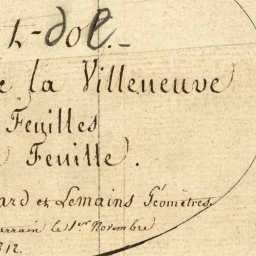 L-dol.
e la Villeneuve
Feuilles
Feuille.
ard et Lemains Géomètres
errain le 1er Novembre
812.